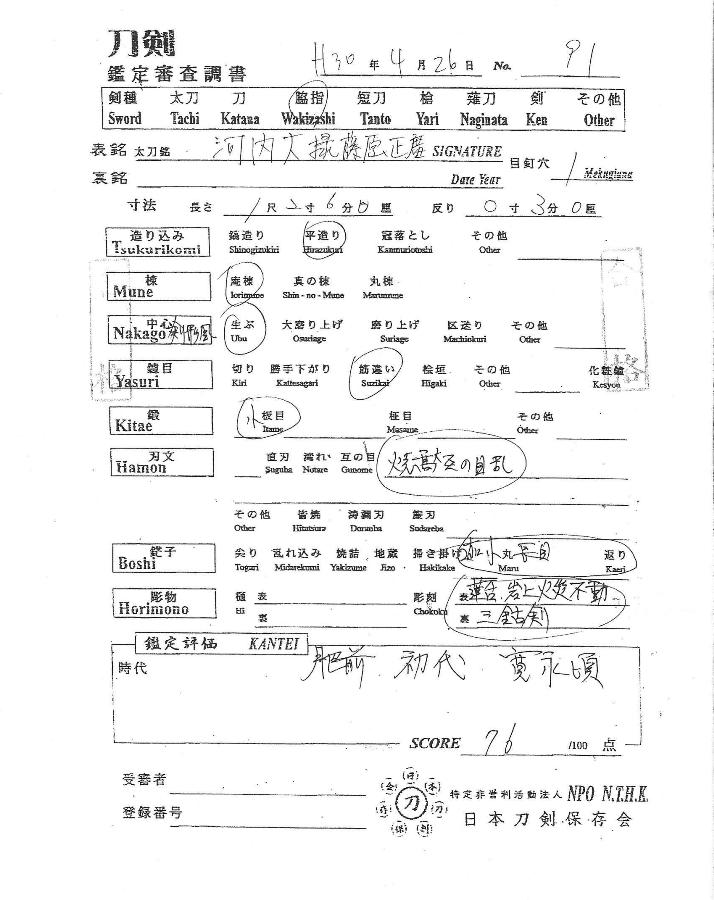 刀剣
鑑定審査調書 H30年 4月26日 No. 91
剣種 太刀 刀 脇指 短刀 槍 薙刀 剣 その他
Sword Tachi Katana Wakizashi Tanto Yari Naginata Ken Other
表銘 太刀銘 河内大掾藤原正廣 SIGNATURE 目釘穴 1 Mekugiana
裏銘 Date Year
寸法 長さ 1尺2寸6分0厘 反り 0寸3分0厘
造り込み 鎬造り 平造り 冠落とし その他
Tsukurikomi Shinogizukuri Hirazukuri Kanmuriotoshi Other
棟 庵棟 真の棟 丸棟
Mune Iorimune Shin-no-Mune Marumune
中心 生ぶ 大磨り上げ 磨り上げ 区送り その他
Nakago Ubu Osuriage Suriage Machiokuri Other
鑢目 切り 勝手下がり 筋違い 桧垣 その他 化粧鑢
Yasuri Kiri Kattesagari Suzikai Higaki Other Kesyou
鍛 小板目 柾目 その他
Kitae Itame Masame Other
刃文 直刃 湾れ 互の目 互の目乱
Hamon Suguha Notare Gunome
その他 皆焼 濤瀾刃 簾刃
Other Hitatsura Doranba Sudareba
鋩子 尖り 乱れ込み 焼詰 地蔵 掃き掛け 小丸 返り
Boshi Togari Midarekomi Yakizume Jizo Hakikake Maru Kaeri
彫物 樋 表 彫刻 表 蓮台 岩上火炎不動
Horimono Hi 裏 Chokoku 裏 三鈷剣
鑑定評価 KANTEI
時代 肥前 初代 寛永頃
SCORE 76 /100 点
受審者
登録番号
特定非営利活動法人 NPO N.T.H.K.
日本刀剣保存会